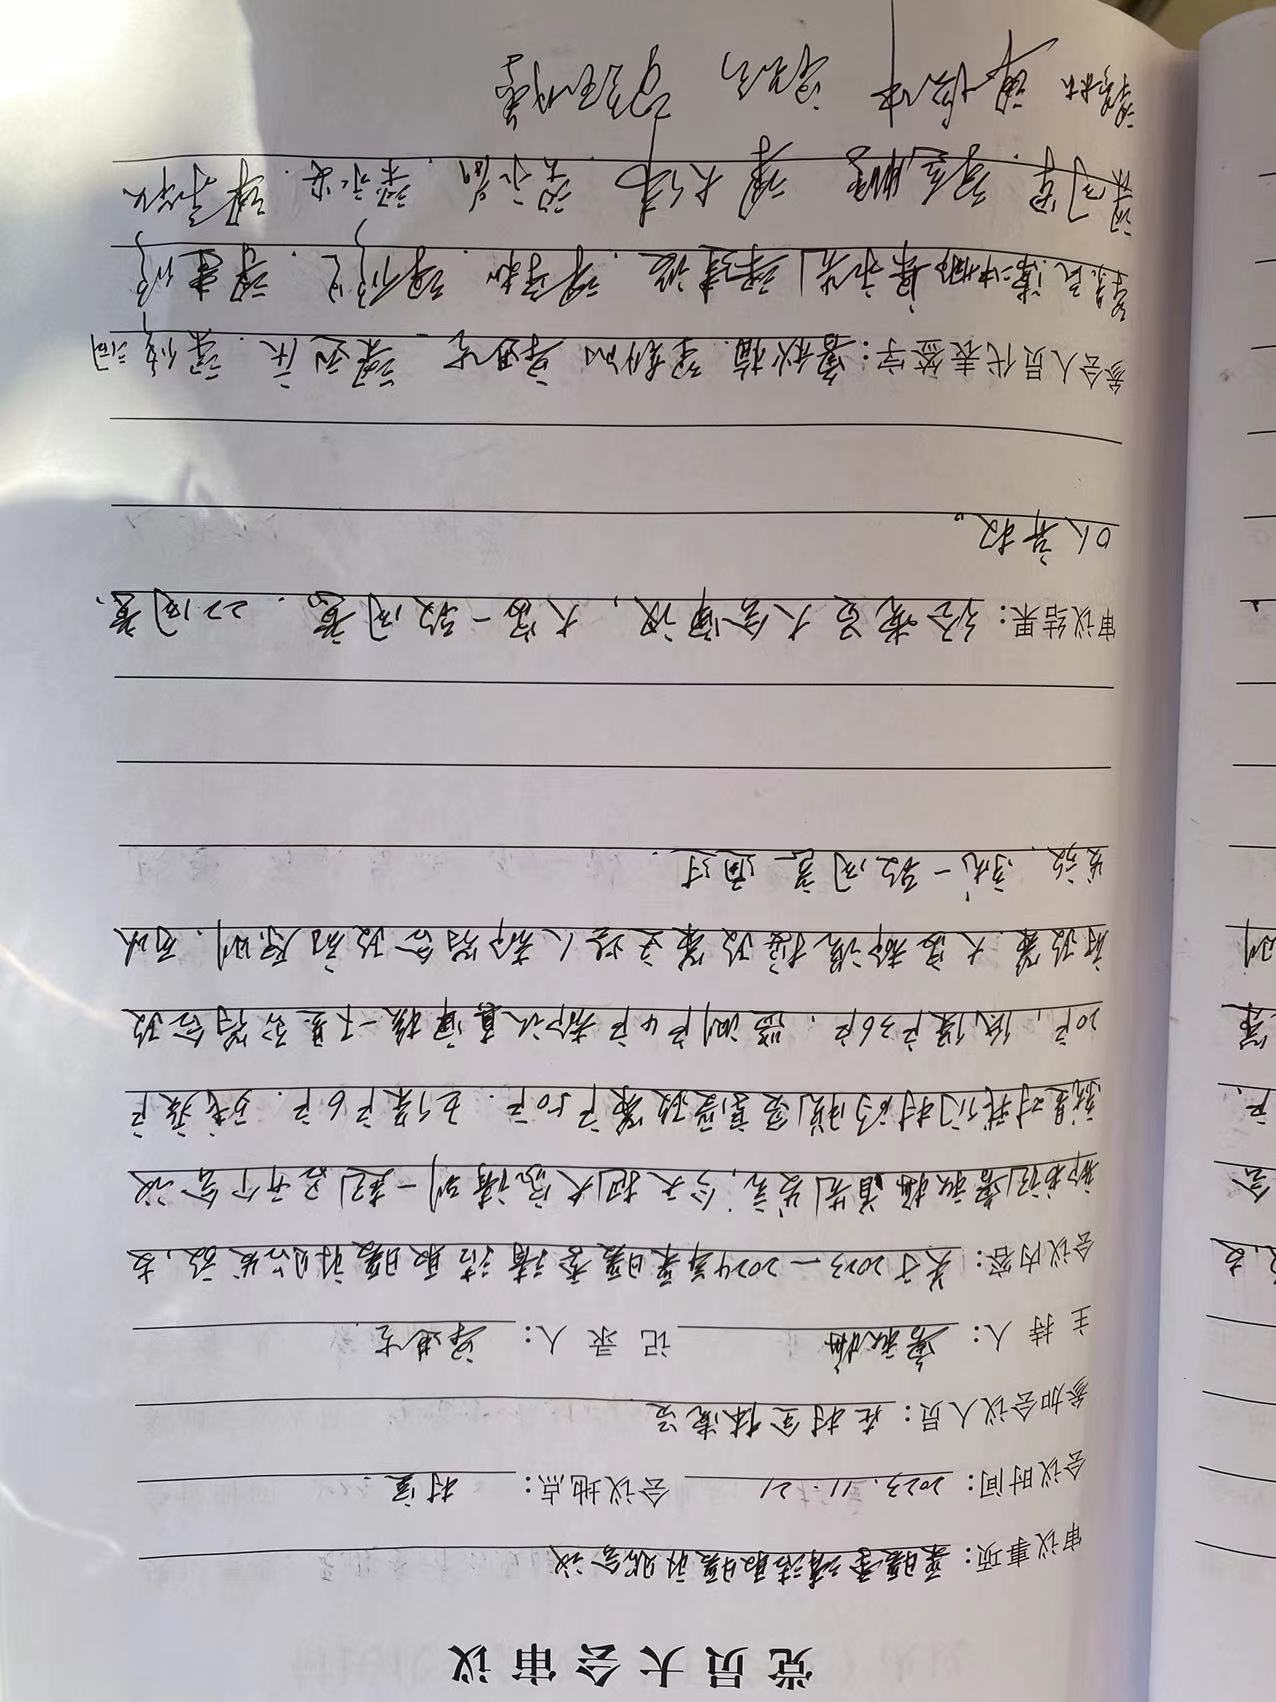 党员大会审议
审议事项: 采暖季清洁取暖补贴会议
会议时间: 2023.11.21 会议地点: 村室.
参加会议人员: 在村全体党员
主持人: 鲁秋梅 记录人: 梁进生.
会议内容: 关于2023—2024年采暖季清洁取暖补贴发放,支
部书记鲁秋梅首先发言:今天把大家请到一起召开个会议
就是对我们村的脱贫享受政策户50户.五保户6户.残疾户
20户,低保户36户.监测户4户都认真审核一下是否符合政
府政策.大家都说按政策这些人都符合政府原则、可以
发放.就一致同意通过.
审议结果: 经党员大会审议,大家一致同意.22同意、
0人弃权。
参会人员代表签字: 鲁秋梅. 梁进生 梁远庆. 梁修洞
梁永先 梁建设. 梁建修
梁同军. 梁大伟. 梁永安.
支
会
户、
策
则